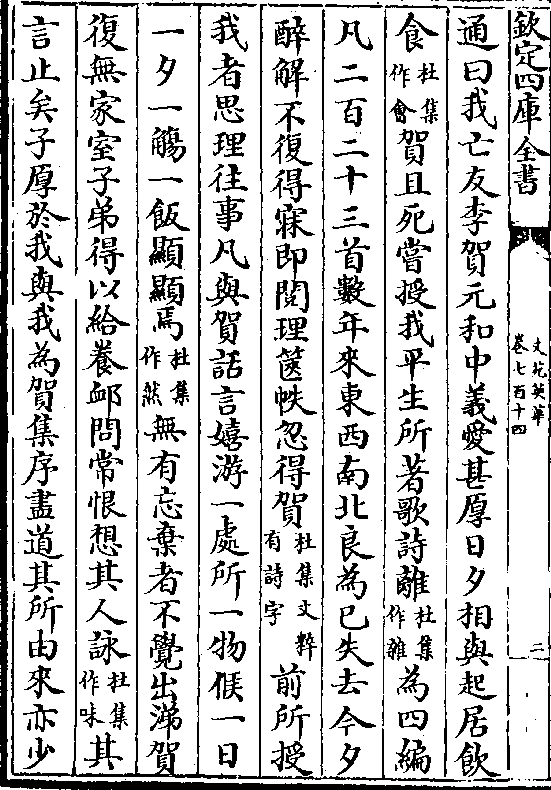 欽定四庫全書
文苑英華
卷七百十四
二
通曰我亡友李賀元和中義愛甚厚日夕相與起居飲
食杜集作會賀且死嘗授我平生所著歌詩離杜集作雜為四編
凡二百二十三首數年來東西南北良為已失去今夕
醉解不復得寐即閱理篋帙忽得賀杜集文粹有詩字前所授
我者思理往事凡與賀話言嬉游一處所一物候一日
一夕一觴一飯顯顯焉杜集作然無有忘棄者不覺出涕賀
復無家室子弟得以給養䘏問常恨想其人詠杜集作味其
言止矣子厚於我與我為賀集序盡道其所由來亦少